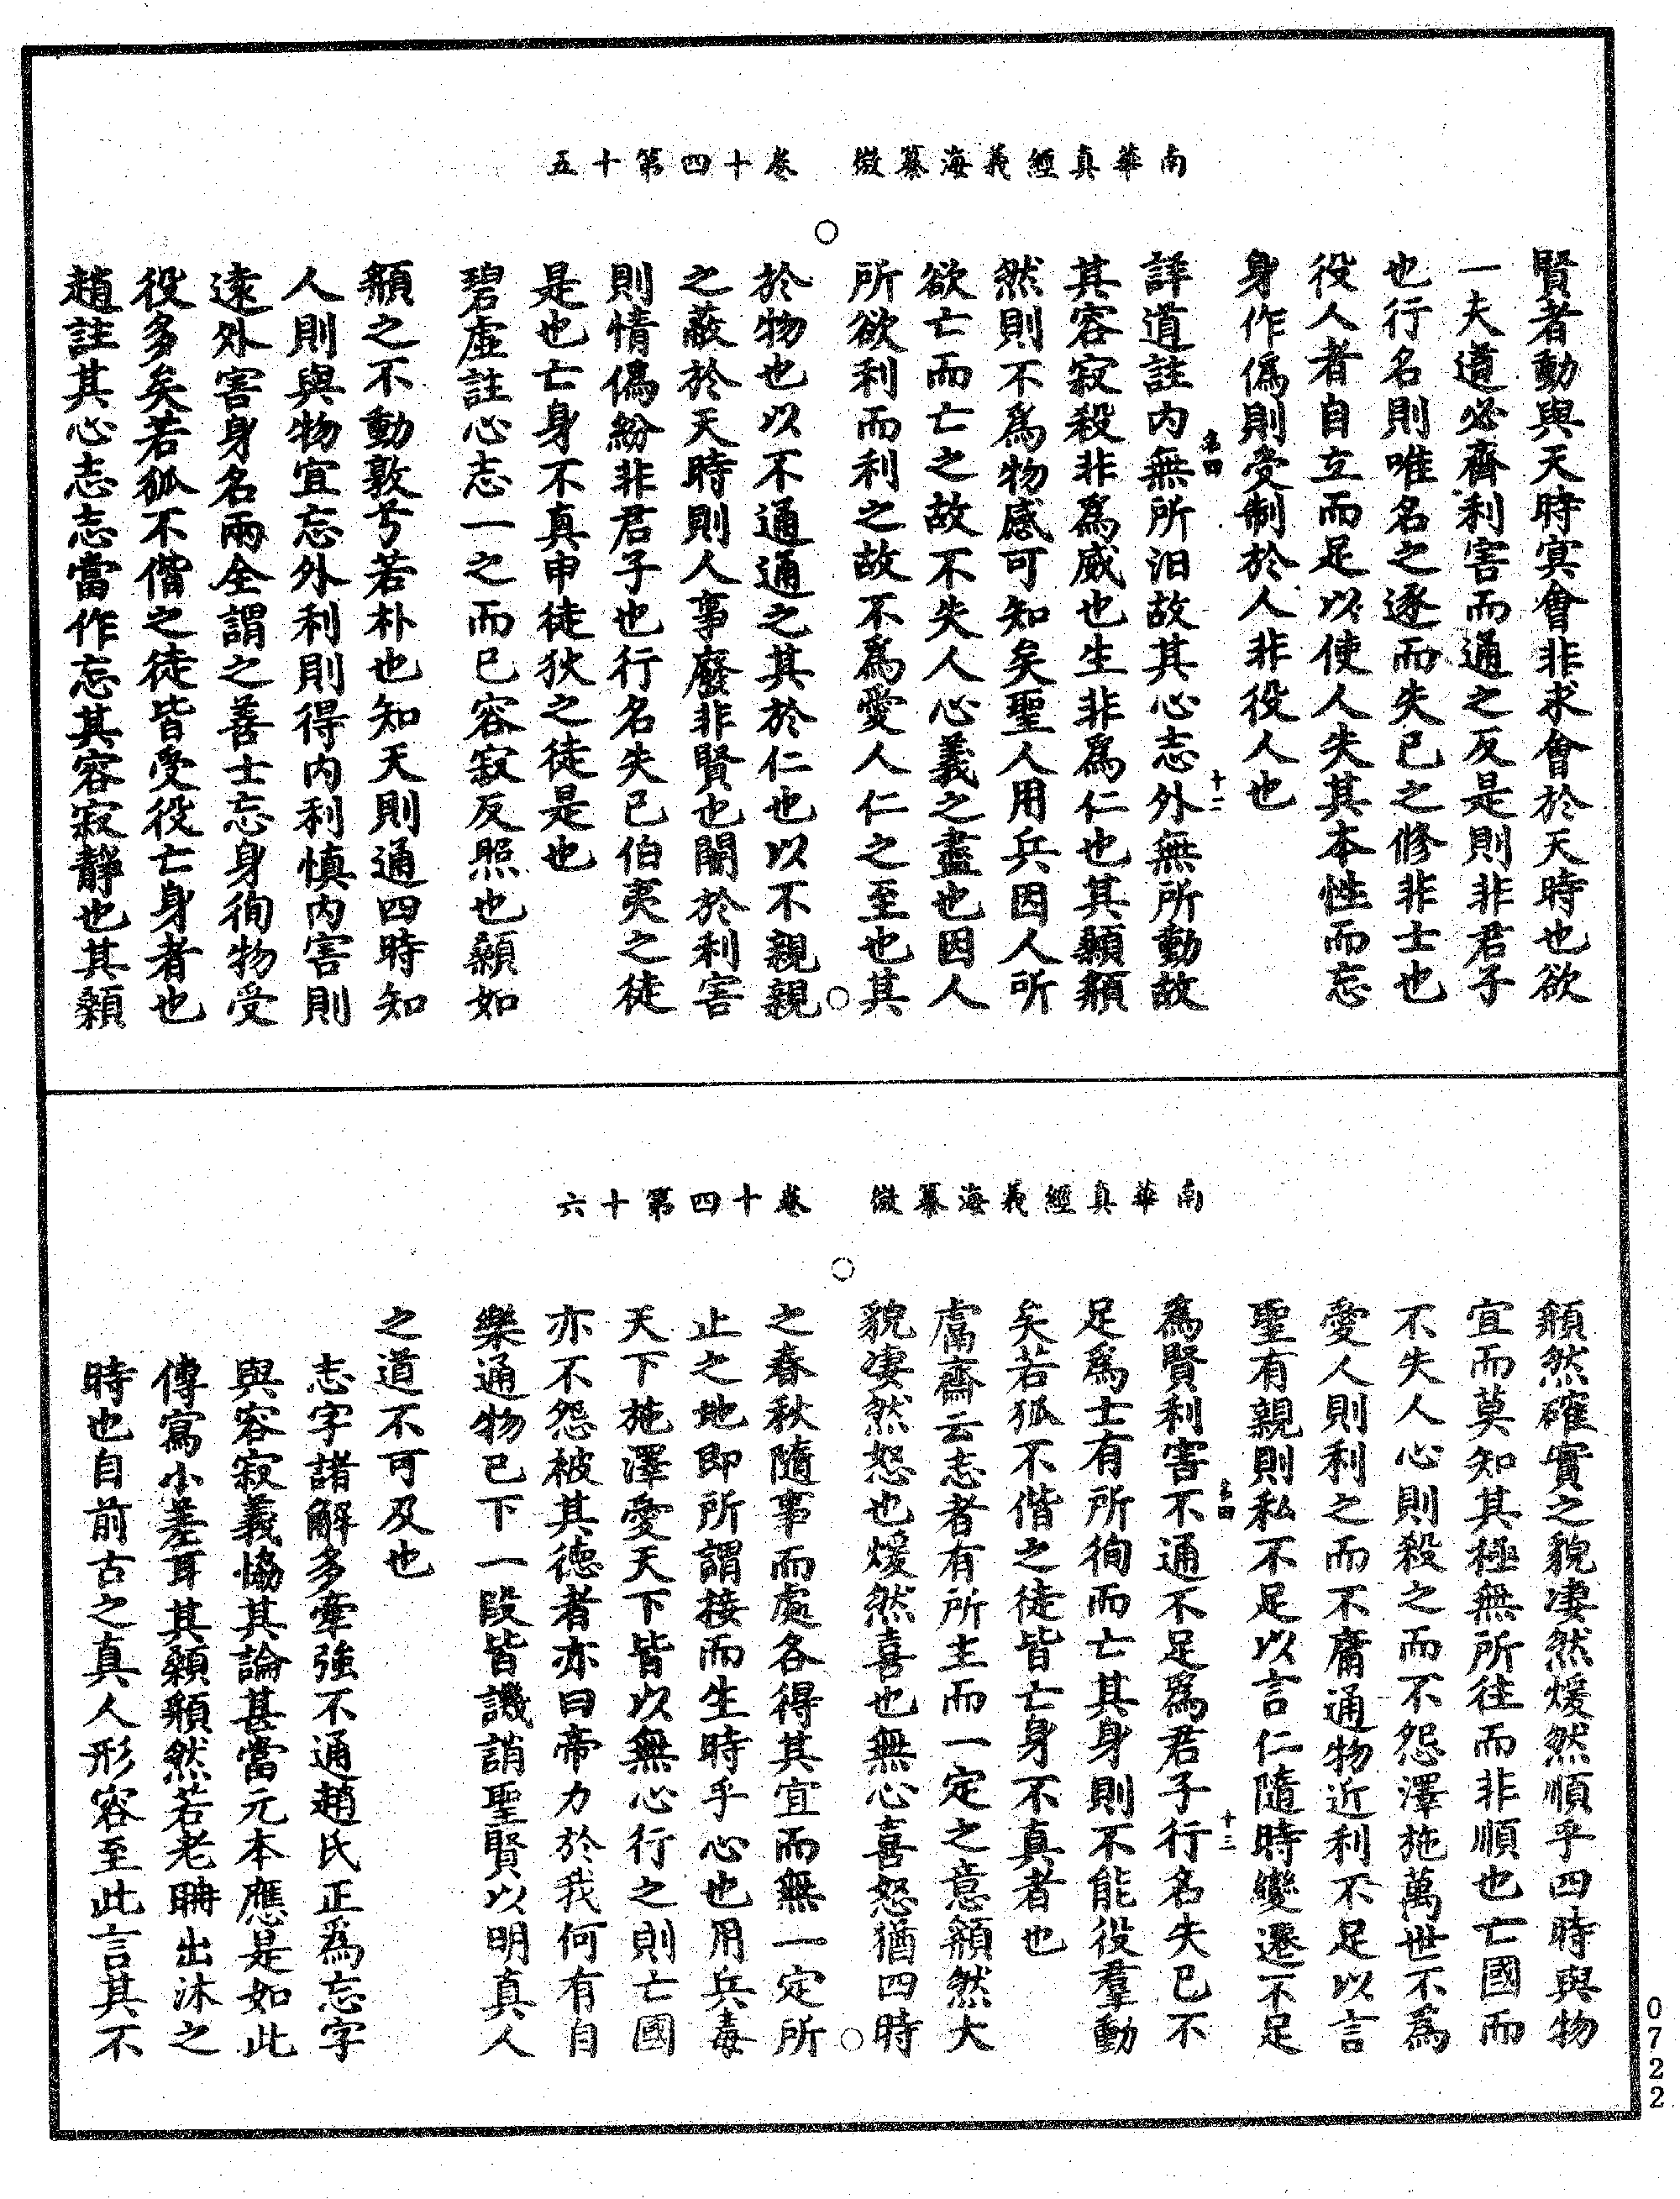 南華真經義海纂微　卷十四第十五
賢者動與天時冥會非求會於天時也欲
一夫道必齊利害而通之反是則非君子
也行名則唯名之逐而失己之修非士也
役人者自立而足以使人失其本性而忘
身作偽則受制於人非役人也
詳道註內無所汩故其心志外無所動故
其容寂殺非為威也生非為仁也其顙頯
然則不為物感可知矣聖人用兵因人所
欲亡而亡之故不失人心義之盡也因人
所欲利而利之故不為愛人仁之至也其
於物也以不通通之其於仁也以不親親
之蔽於天時則人事廢非賢也闇於利害
則情偽紛非君子也行名失己伯夷之徒
是也亡身不真申徒狄之徒是也
碧虛註心志一之而已容寂反照也顙如
頯之不動敦兮若朴也知天則通四時知
人則與物宜忘外利則得內利慎內害則
遠外害身名兩全謂之善士忘身徇物受
役多矣若狐不偕之徒皆受役亡身者也
趙註其心志志當作忘其容寂靜也其顙
南華真經義海纂微　卷十四第十六
頯然確實之貌淒然煖然順乎四時與物
宜而莫知其極無所往而非順也亡國而
不失人心則殺之而不怨澤施萬世不為
愛人則利之而不庸通物近利不足以言
聖有親則私不足以言仁隨時變遷不足
為賢利害不通不足為君子行名失己不
足為士有所徇而亡其身則不能役羣動
矣若狐不偕之徒皆亡身不真者也
鬳齋云志者有所主而一定之意頯然大
貌淒然怒也煖然喜也無心喜怒猶四時
之春秋隨事而處各得其宜而無一定所
止之地即所謂接而生時乎心也用兵毒
天下施澤愛天下皆以無心行之則亡國
亦不怨被其德者亦曰帝力於我何有自
樂通物已下一段皆譏誚聖賢以明真人
之道不可及也
志字諸解多牽強不通趙氏正為忘字
與容寂義協其論甚當元本應是如此
傳寫小差耳其顙頯然若老聃出沐之
時也自前古之真人形容至此言其不
0722